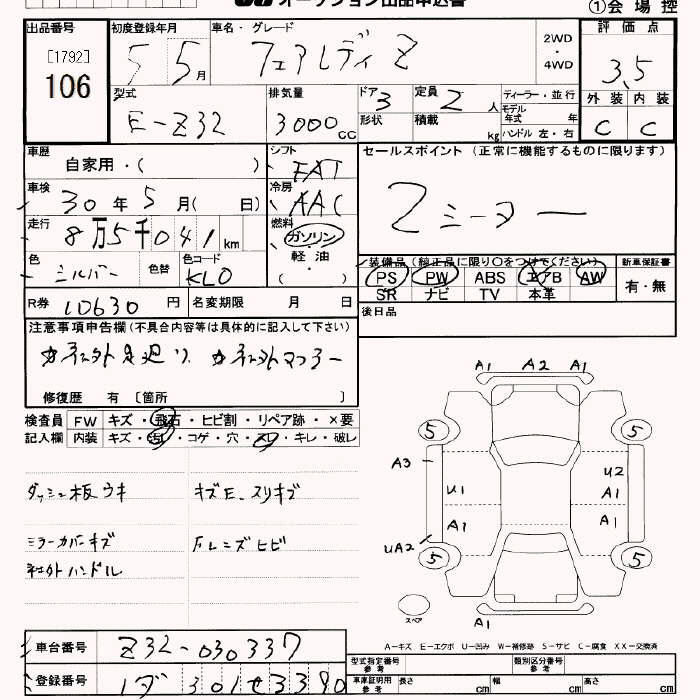 オークション出品申込書
①会 場 控
出品番号
[1792]
106
初度登録年月
5 5月
車名・グレード
フェアレディZ
2WD
・
4WD
評 価 点
3.5
外 装 内 装
C C
型式
E-Z32
排気量
3000CC
ドア
3
形状
定員
2人
積載
kg
ディーラー・並行
モデル
年式 年
ハンドル 左・右
車歴
自家用・( )
シフト
FAT
セールスポイント (正常に機能するものに限ります)
2シーター
車検
30年5月( 日)
冷房
AAC
走行
8万5千041km
燃料
ガソリン
・
軽 油
( ・ )
色
シルバー
色替
色コード
KL0
装備品 (純正品に限り○をつけてください)
PS PW ABS エアB AW
SR ナビ TV 本革
新車保証書
有・無
R券 10630円
名変期限 月 日
後日品
注意事項申告欄(不具合内容等は具体的に記入して下さい)
修復歴 有 [箇所 ]
検査員
記入欄
FW キズ・飛石・ヒビ割・リペア跡・×要
内装 キズ・汚レ・コゲ・穴・スレ・キレ・破レ
ダッシュ板ウキ
キズE、スリキズ
ミラーカバーキズ
社外ハンドル
Fレンズヒビ
A1 A2 A1
5 5
A3
U1
A1
U2
A1
A1
UA2
5 5
スペア
A1
A-キズ E-エクボ U-凹み W-補修跡 S-サビ C-腐食 XX-交換済
車台番号
Z32-030337
登録番号
301せ3390
型式指定番号
参考
類別区分番号
参考
車庫証明用
参考
長さ cm
幅 cm
高さ cm